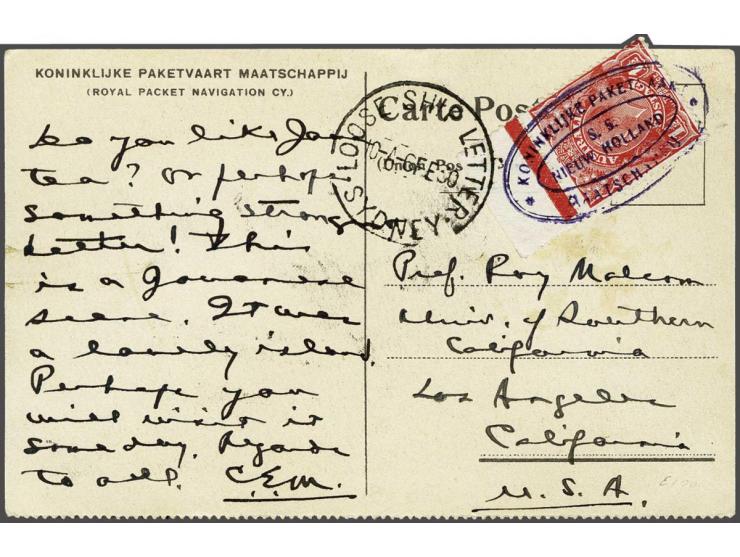 KONINKLIJKE PAKETVAART MAATSCHAPPIJ
(ROYAL PACKET NAVIGATION CY.)
Do you like Java
tea? Or perhaps
something strong
better! This
is a Javanese
scene. It was
a lovely island.
Perhaps you
will visit it
some day. Regards
to all. C.E.M.
Carte Post
LOOSE SHIP LETTER
SYDNEY
KONINKLIJKE PAKETVAART
S.S.
NIEUW HOLLAND
MAATSCHAPPIJ
Prof. Roy Malcom
Univ. of Southern
California
Los Angeles
California
U.S.A.